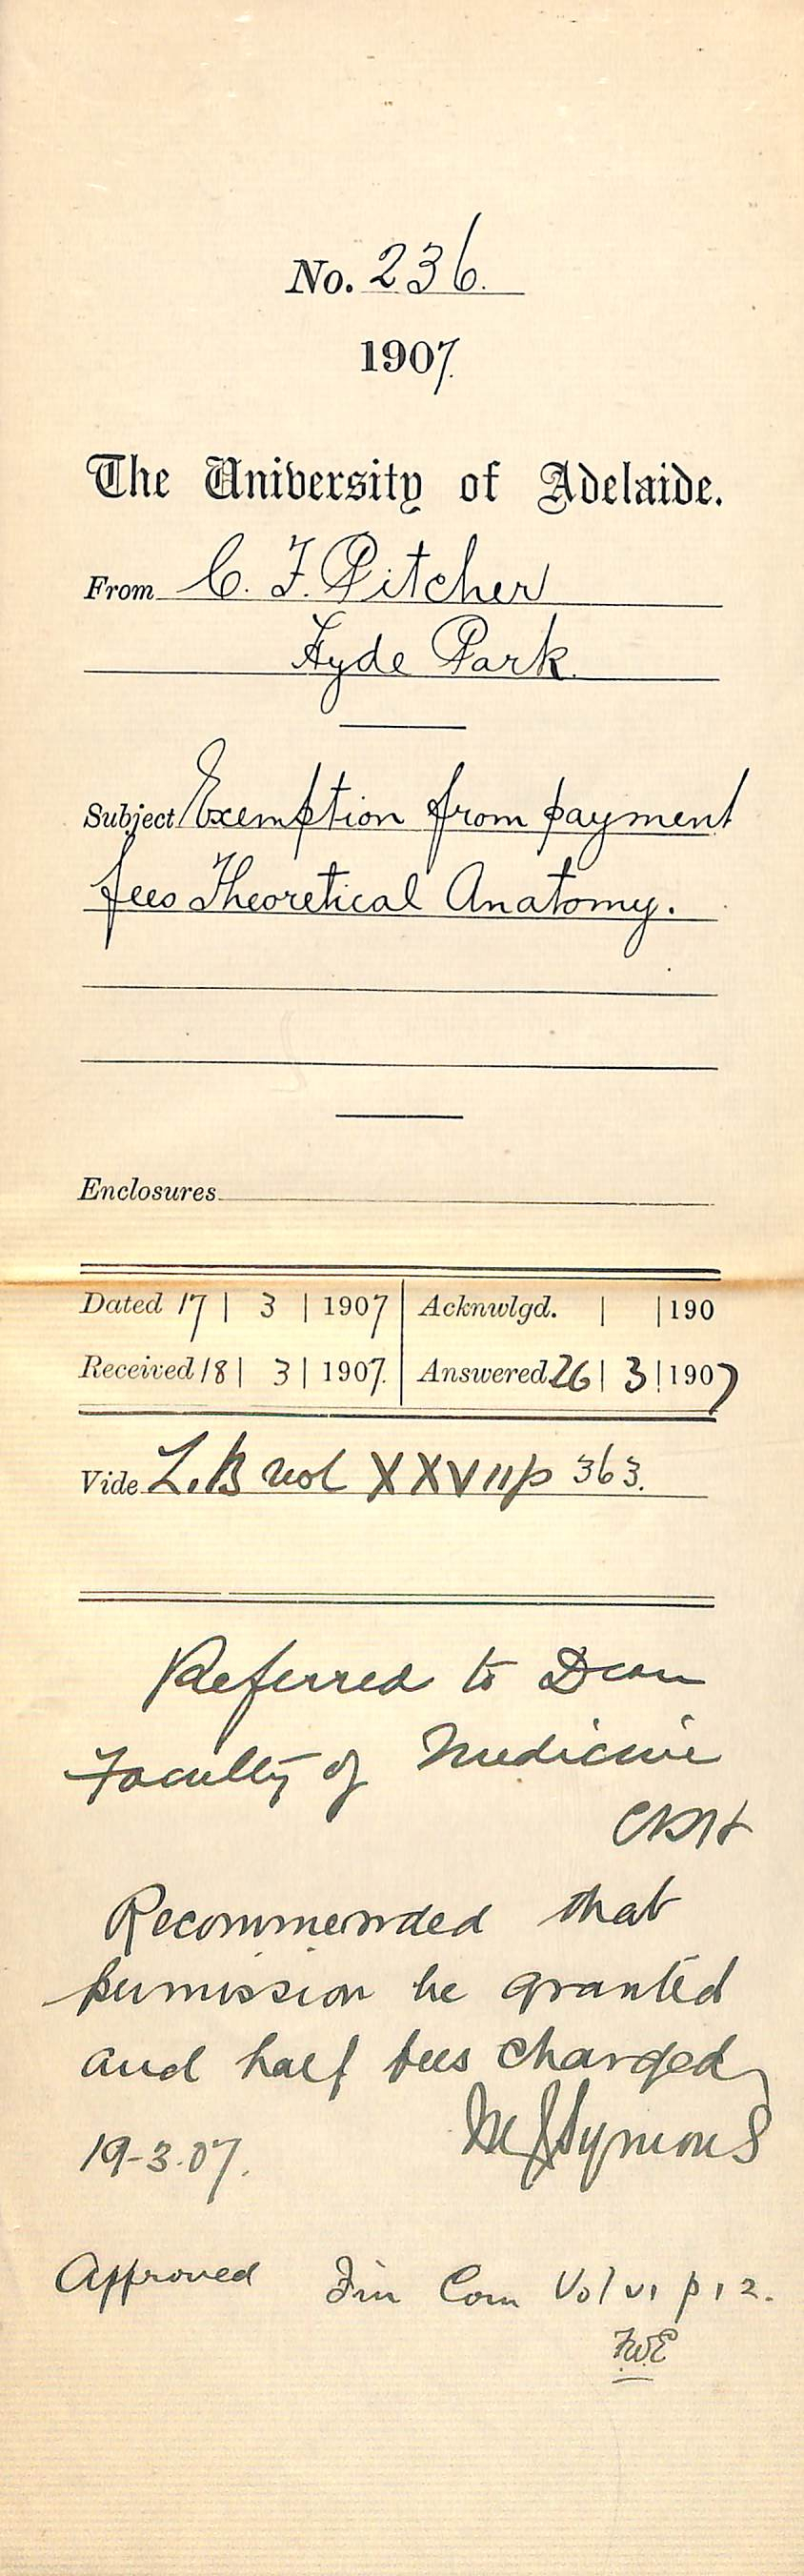 No. 236.
1907.
The University of Adelaide.
From C. F. Pitcher
Hyde Park.
Subject Exemption from payment
fees Theoretical Anatomy.
Enclosures
Dated 17 | 3 | 1907 | Acknwlgd. | | 190
Received 18 | 3 | 1907. | Answered 26 | 3 | 1907
Vide L.B vol XXVII p 363.
Referred to Dean
Faculty of Medicine
CRH
Recommended that
permission be granted
and half fees charged
19-3-07. Symons
Approved Fin Com Vol VI p 12.
F.W.E